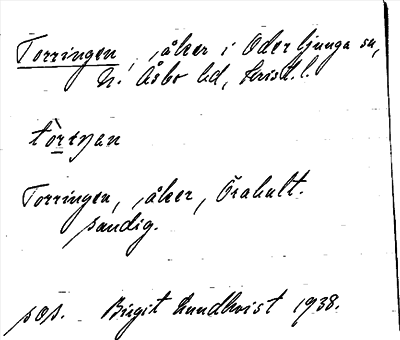 Torringen, åker i Oderljunga sn,
N. Åsbo hd, Krist. l.
tòrŋan
Torringen, åker, Örahult.
sandig.
pop. Birgit Lundkvist 1938.